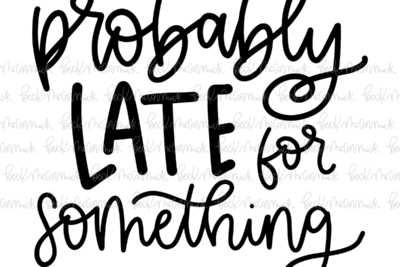 probably
LATE for
something